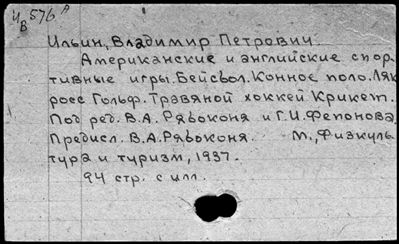 И/В 576 А
Ильин, Владимир Петрович.
Американские и английские спор-
тивные игры. Бейсбол. Конное поло. Ляк
росс Гольф. Травяной хоккей Крикет.
Под ред. В.А. Рябоконя и Г.И. Фепонова
Предисл. В.А. Рябоконя. М., Физкуль
тура и туризм, 1937.
94 стр. с илл.